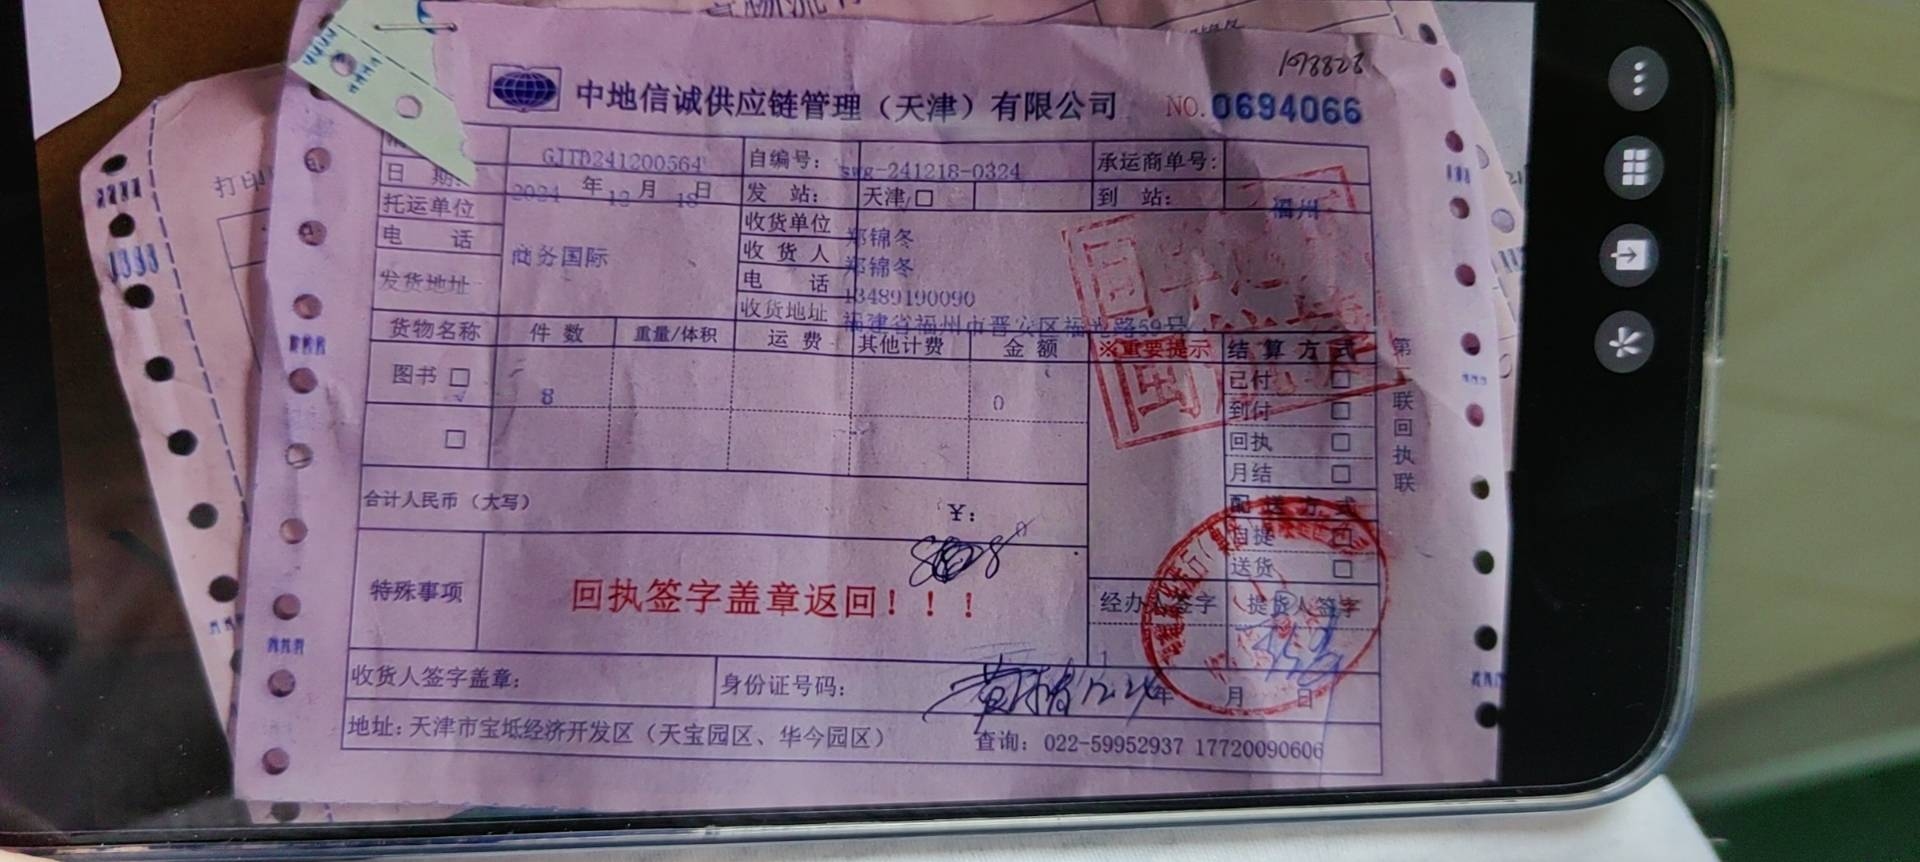 中地信诚供应链管理（天津）有限公司 NO.0694066
198828
打印
GJTD241200564 自编号： swg-241218-0324 承运商单号：
日 期： 2024 年 12 月 18 日 发 站： 天津 □ 到 站： 福州
托运单位 商务国际 收货单位 郑锦冬
电 话 收 货 人 郑锦冬
发货地址 电 话 13489190090
收货地址 福建省福州市晋安区福 路59号
货物名称 件 数 重量/体积 运 费 其他计费 金 额 ※重要提示 结 算 方 式
图书 □ √ 8 0 已付 □
□ 到付 □
回执 □
月结 □
合计人民币（大写） 配 送 方 式
自提 □
送货 □
特殊事项 回执签字盖章返回！！！ 经办人签字 提货人签字
收货人签字盖章： 身份证号码： 12.24 年 月 日
地址：天津市宝坻经济开发区（天宝园区、华今园区） 查询：022-59952937 17720090606
第 联 回 执 联